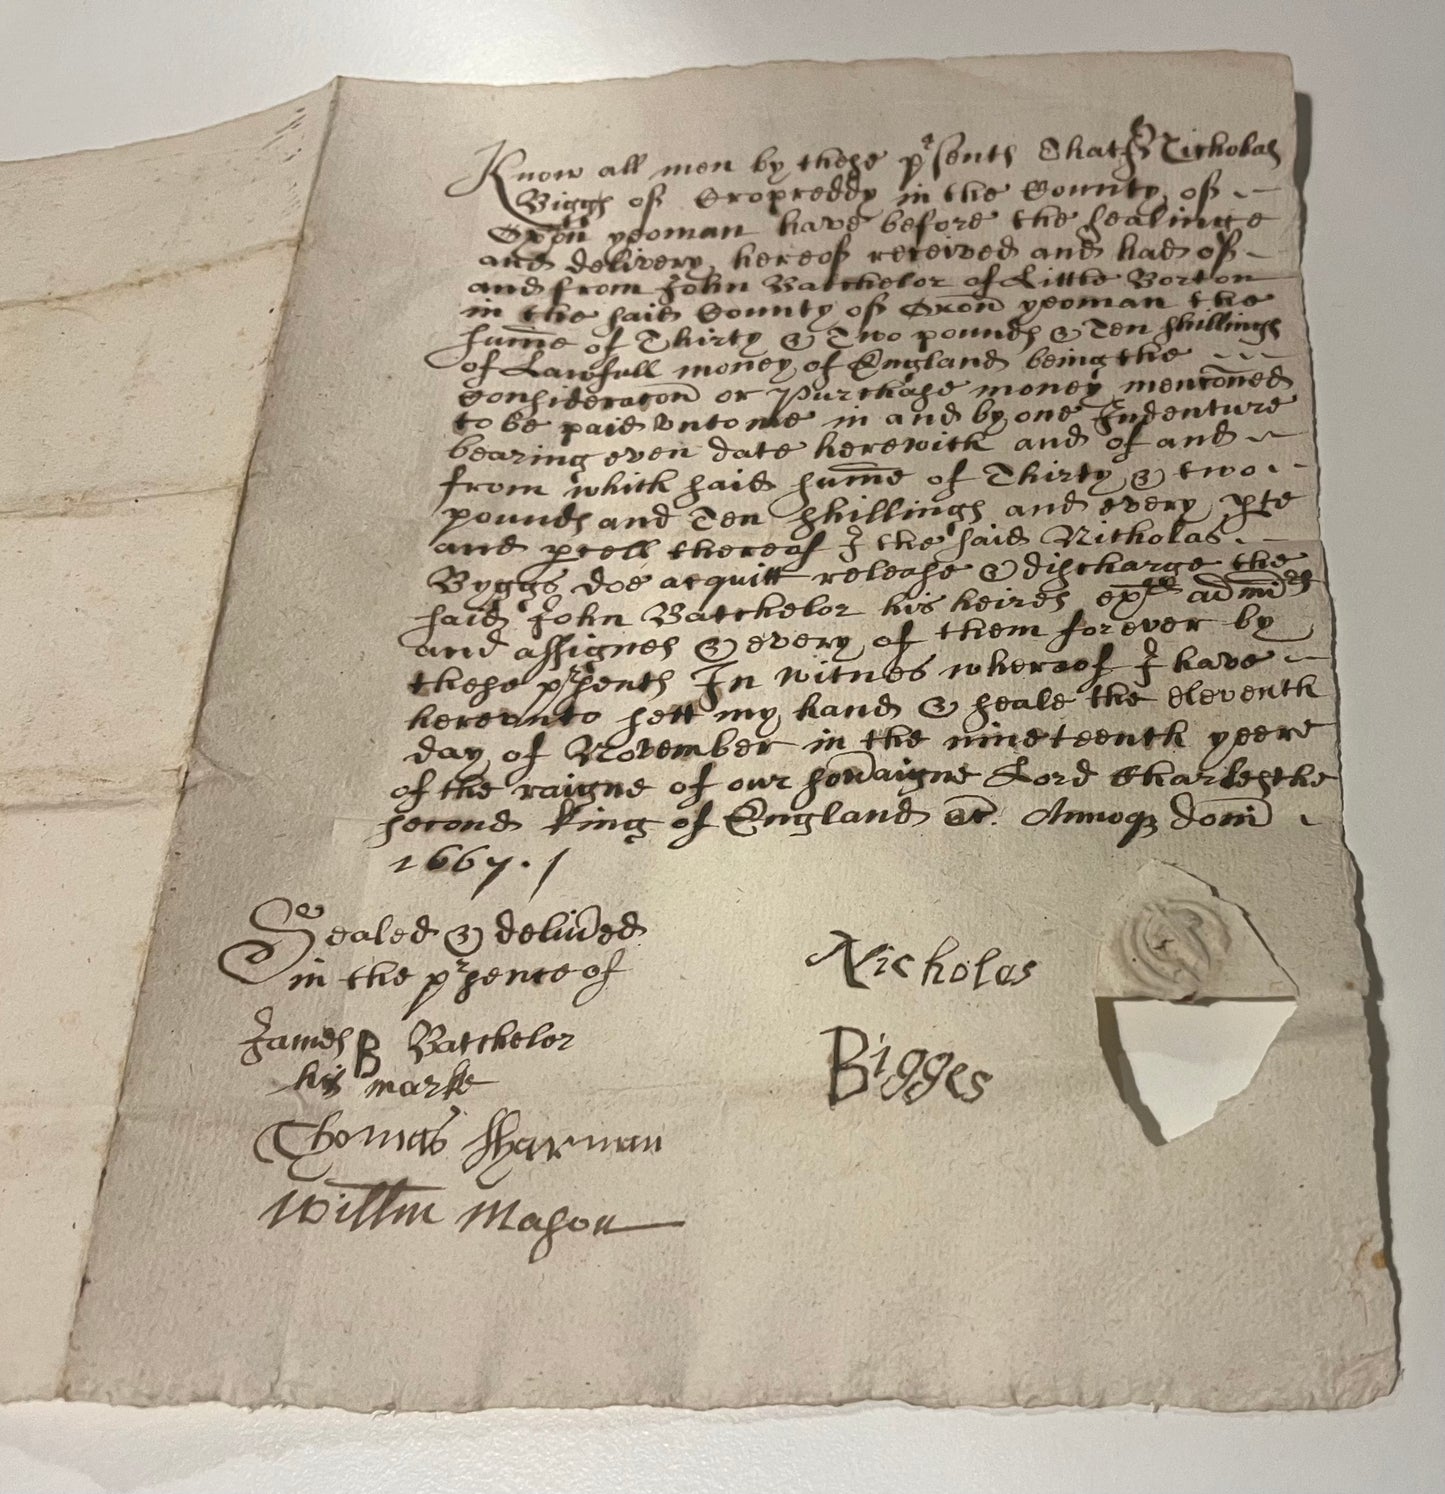 Know all men by these pr̃sents That I Nicholas
Biggs of Cropreddy in the County of
Oxōn yeoman have before the sealinge
and delivery hereof received and had of
and from John Batchelor of Little Borton
in the said County of Oxōn yeoman the
sum̄e of Thirty & Two pounds & Ten shillings
of Lawfull money of England being the
Consideracōn or Purchase money mencōned
to be paid unto me in and by one Indenture
bearing even date herewith and of and
from which said sum̄e of Thirty & two
pounds and Ten shillings and every pte
and pcell thereof I the said Nicholas
Byggs doe acquitt release & discharge the
said John Batchelor his heires exrs admīrs
and assignes & every of them forever by
these pr̃sents In witnes whereof I have
hereunto sett my hand & seale the eleventh
day of November in the nineteenth yeere
of the raigne of our sov̄aigne Lord Charles the
second King of England &c. Annoq dom̄i
1667.
Sealed & deliv̄ed
in the pr̃sence of
James B Batchelor
his marke
Thomas Sharman
Willm Mason
Nicholas
Bigges